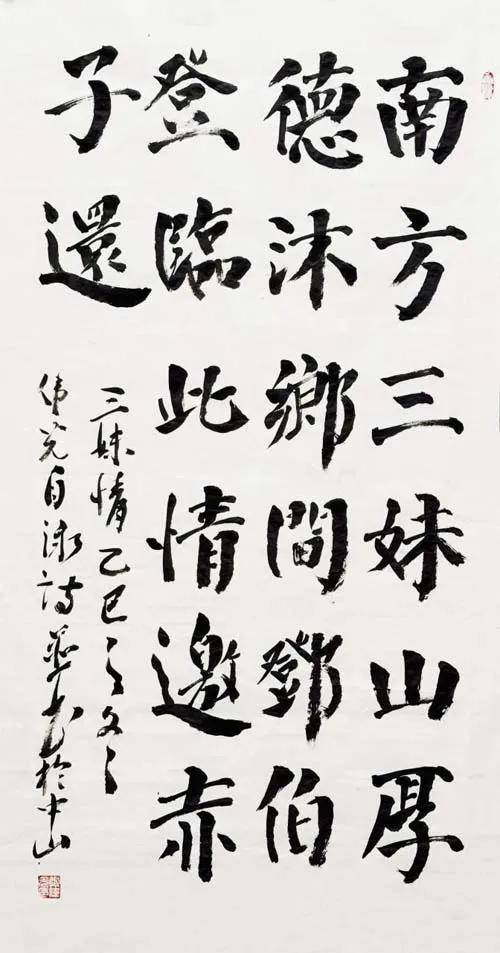 南方三妹山厚
德沐鄉間鄧伯
登臨此情邀赤
子還
三妹情乙巳之冬
伟光自泳诗並书於中山